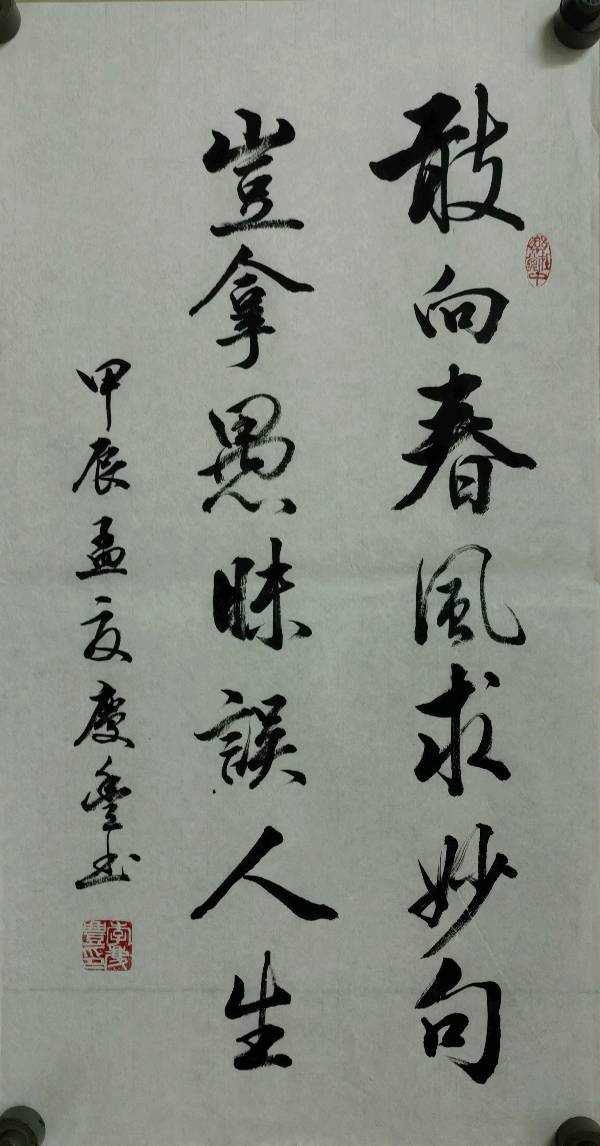 敢向春風求妙句
豈拿愚昧誤人生
甲辰孟夏慶豐书